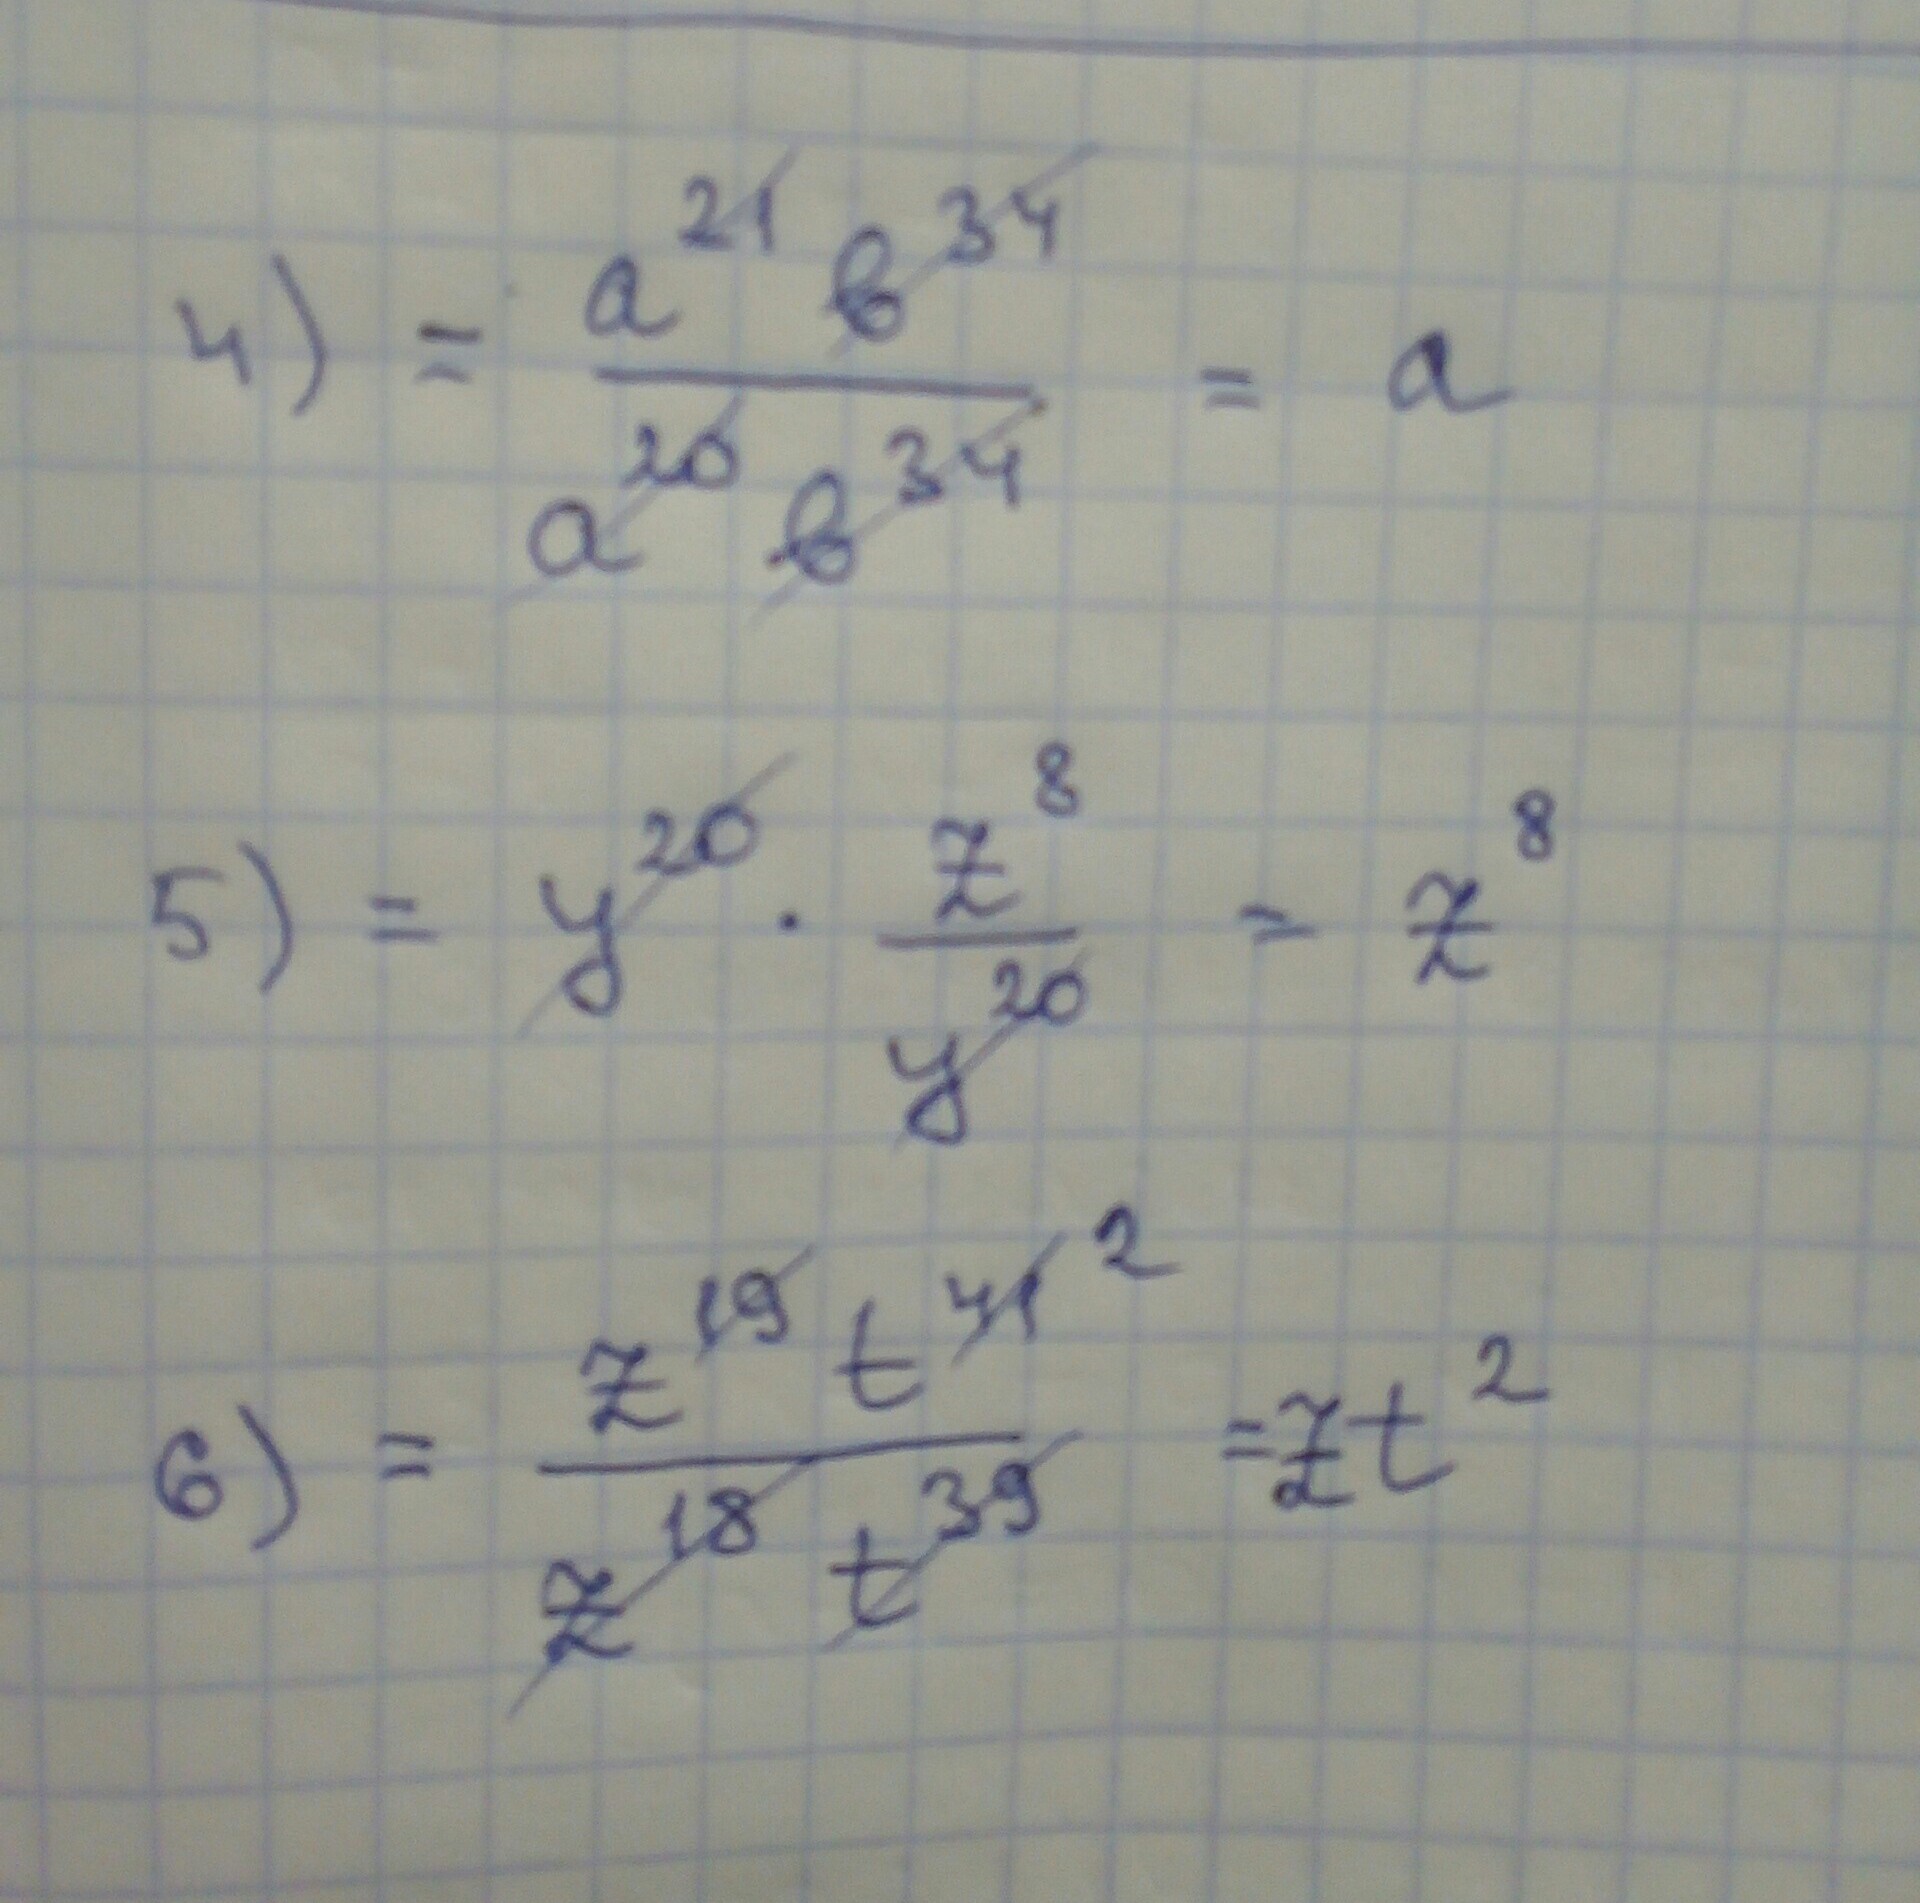 4) = a^21 b^34 / a^20 b^34 = a
5) = y^20 · z^8 / y^20 = z^8
6) = z^19 t^41 2 / z^18 t^39 = zt^2